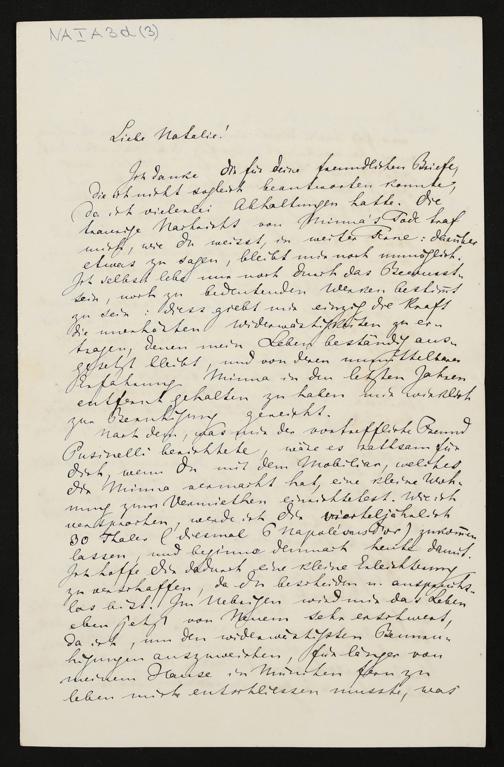 NA I A 3d (3)
Liebe Natalie!
Ich danke dir für deine freundlichen Briefe,
die ich nicht sogleich beantworten konnte,
da ich vielerlei Abhaltungen hatte. Die
traurige Nachricht von Minna's Tode traf
mich, wie du weisst, in weiter Ferne: darüber
etwas zu sagen, bleibt mir noch unmöglich.
Ich selbst lebe nur noch durch das Bewusst-
sein, noch zu bedeutenden Werken bestimmt
zu sein: diess giebt mir einzig die Kraft
die unerhörten Widerwärtigkeiten zu er-
tragen, denen mein Leben beständig aus-
gesetzt bleibt, und von deren unmittelbarer
Erfahrung Minna in den letzten Jahren
entfernt gehalten zu haben mir wirklich
zur Beruhigung gereicht.
Nach dem, was mir der vortreffliche Freund
Pusinelli berichtete, wäre es rathsam für
dich, wenn du mit dem Mobiliar, welches
dir Minna vermacht hat, eine kleine Woh-
nung zum Vermiethen einrichtetest. Wie ich
versprochen, werde ich dir vierteljährlich
30 Thaler (diesmal 6 Napoléon d'or) zukommen
lassen, und beginne demnach heute damit.
Ich hoffe dir dadurch eine kleine Erleichterung
zu verschaffen, da du bescheiden u. anspruchs-
los bist. Im Uebrigen wird mir das Leben
eben jetzt von Neuem sehr erschwert,
da ich, um den widerwärtigsten Beunru-
higungen auszuweichen, für länger von
meinem Hause in München fern zu
leben mich entschliessen musste, was